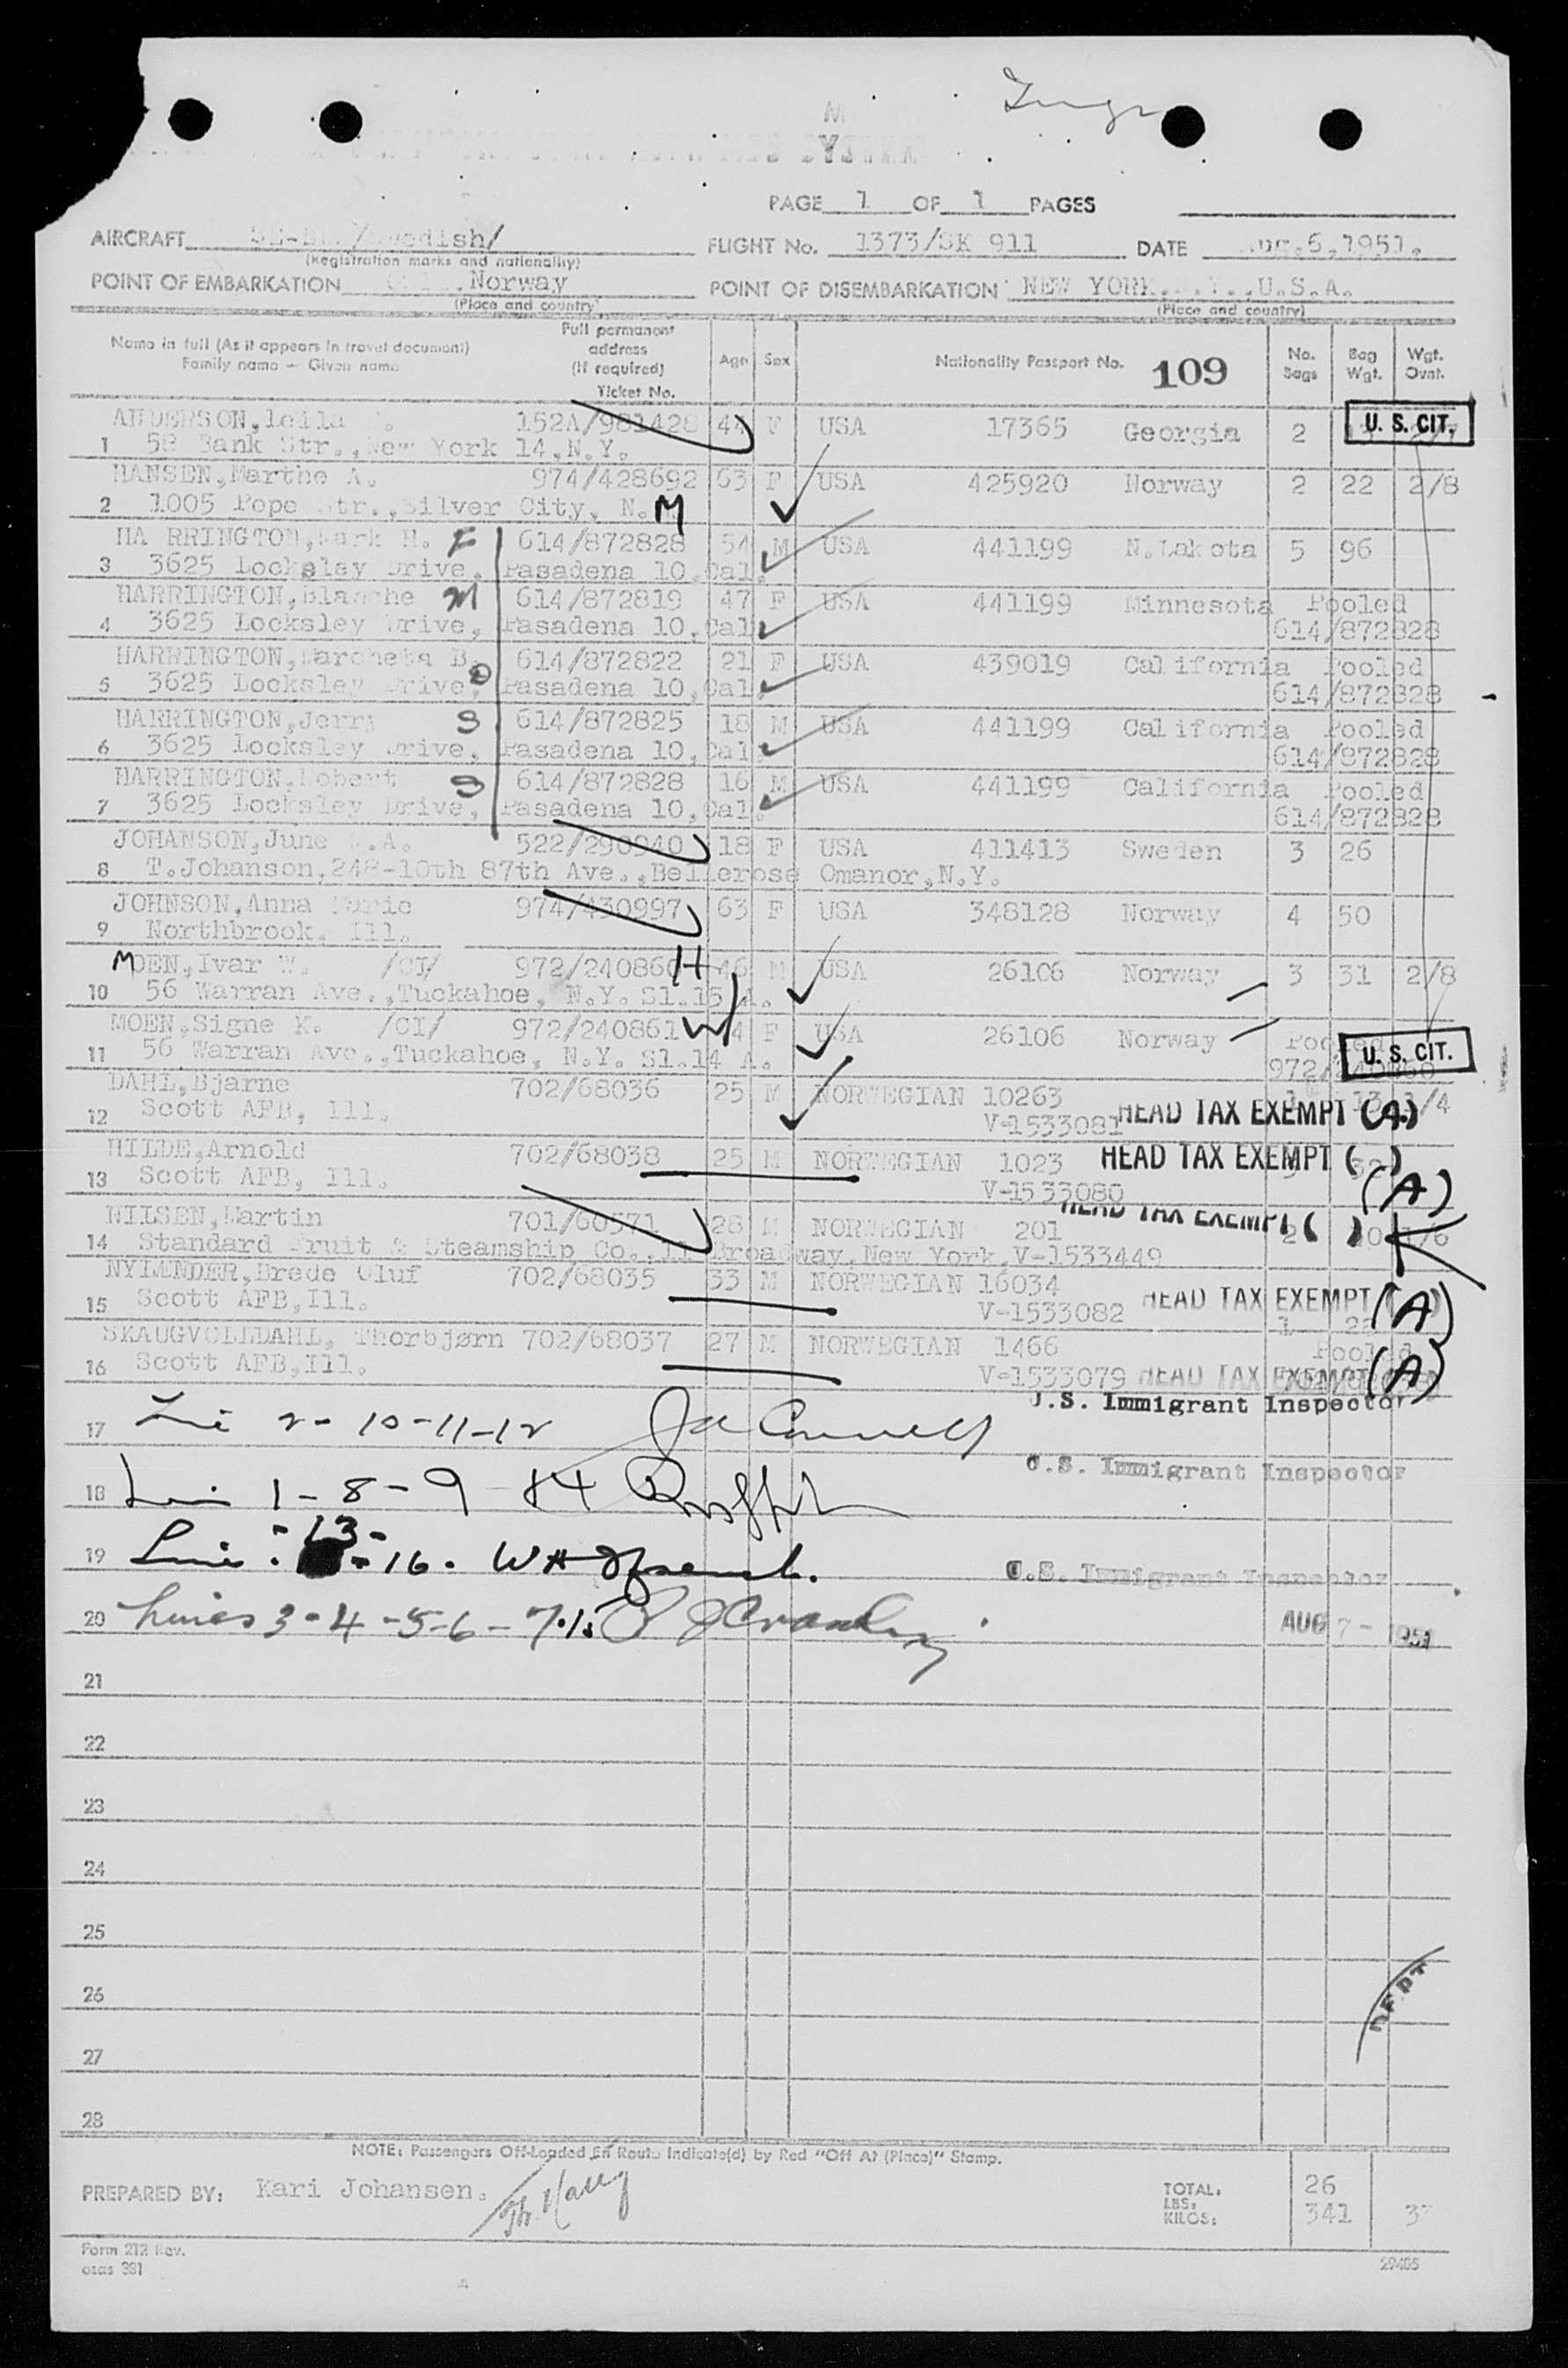 PAGE 1 OF 1 PAGES
AIRCRAFT /Swedish/ FLIGHT No. 1373/SK 911 DATE Aug.6,1951.
(Registration marks and nationality)
POINT OF EMBARKATION Norway POINT OF DISEMBARKATION NEW YORK.N.Y.,U.S.A.
(Place and country) (Place and country)
Name in full (As it appears in travel document)
Family name — Given name
Full permanent
address
(If required)
Ticket No.
Age Sex Nationality Passport No. 109 No. Bags Bag Wgt. Wgt. Ovnt.
ANDERSON, Leila 152A/981428 44 F USA 17365 Georgia 2 U. S. CIT.
1 58 Bank Str., New York 14,N.Y.
HANSEN, Marthe A. 974/428692 63 F USA 425920 Norway 2 22 2/8
2 1005 Pope Str.,Silver City, N.M
HA RRINGTON, Mark H. F 614/872828 54 M USA 441199 N.Dakota 5 96
3 3625 Locksley Drive, Pasadena 10,Cal.
HARRINGTON, Blanche M 614/872819 47 F USA 441199 Minnesota Pooled
4 3625 Locksley Drive, Pasadena 10,Cal. 614/872828
HARRINGTON, Marcheta B. D 614/872822 21 F USA 439019 California Pooled
5 3625 Locksley Drive, Pasadena 10,Cal. 614/872828
HARRINGTON, Jerry S 614/872825 18 M USA 441199 California Pooled
6 3625 Locksley Drive, Pasadena 10,Cal. 614/872828
HARRINGTON, Robert S 614/872828 16 M USA 441199 California Pooled
7 3625 Locksley Drive, Pasadena 10,Cal. 614/872828
JOHANSON, June .A. 522/290940 18 F USA 411413 Sweden 3 26
8 T.Johanson,248-10th 87th Ave.,Bellerose Omanor,N.Y.
JOHNSON, Anna Marie 974/430997 63 F USA 348128 Norway 4 50
9 Northbrook, Ill.
MOEN, Ivar W. /CI/ 972/240860 H 46 M USA 26106 Norway 3 31 2/8
10 56 Warran Ave.,Tuckahoe, N.Y. Sl.15 A.
MOEN, Signe K. /CI/ 972/240861 W 44 F USA 26106 Norway Pooled
11 56 Warran Ave.,Tuckahoe, N.Y. Sl.14 A. 972/240860 U. S. CIT.
DAHL, Bjarne 702/68036 25 M NORWEGIAN 10263 13 1/4
12 Scott AFB, Ill. V-1533081 HEAD TAX EXEMPT (A)
HILDE, Arnold 702/68038 25 M NORWEGIAN 1023 HEAD TAX EXEMPT ( )
13 Scott AFB, Ill. V-1533080 (A)
NILSEN, Martin 701/60571 28 M NORWEGIAN 201 HEAD TAX EXEMPT ( ) K
14 Standard Fruit & Steamship Co.,11 Broadway,New York,V-1533449
NYLÆNDER, Brede Oluf 702/68035 33 M NORWEGIAN 16034
15 Scott AFB,Ill. V-1533082 HEAD TAX EXEMPT (A)
SKAUGVOLLDAHL, Thorbjørn 702/68037 27 M NORWEGIAN 1466 Pooled
16 Scott AFB,Ill. V-1533079 HEAD TAX EXEMPT (A)
U.S. Immigrant Inspector
17 2-10-11-12
U.S. Immigrant Inspector
18 1-8-9-14
19 -13-16.
U.S. Immigrant Inspector
20 Lines 3-4-5-6-7. AUG 7 - 1951
21
22
23
24
25
26
DEPT
27
28
NOTE: Passengers Off-Loaded En Route Indicate(d) by Red "Off At (Place)" Stamp.
PREPARED BY: Kari Johansen. TOTAL: 26
LBS:
KILOS: 341
Form 212 Rev.
osas 381 29405